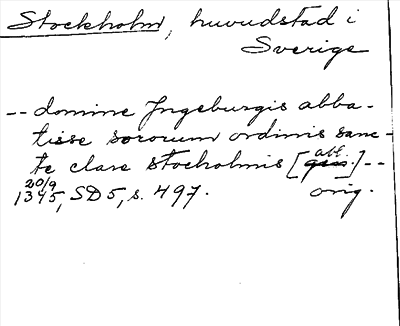 Stockholm, huvudstad i
Sverige
-- domine Jngeburgis abba-
tisse sororum ordinis sanc-
te clare stocholmis [gen. abl.] --
20/9
1345, SD 5, s. 497. orig.